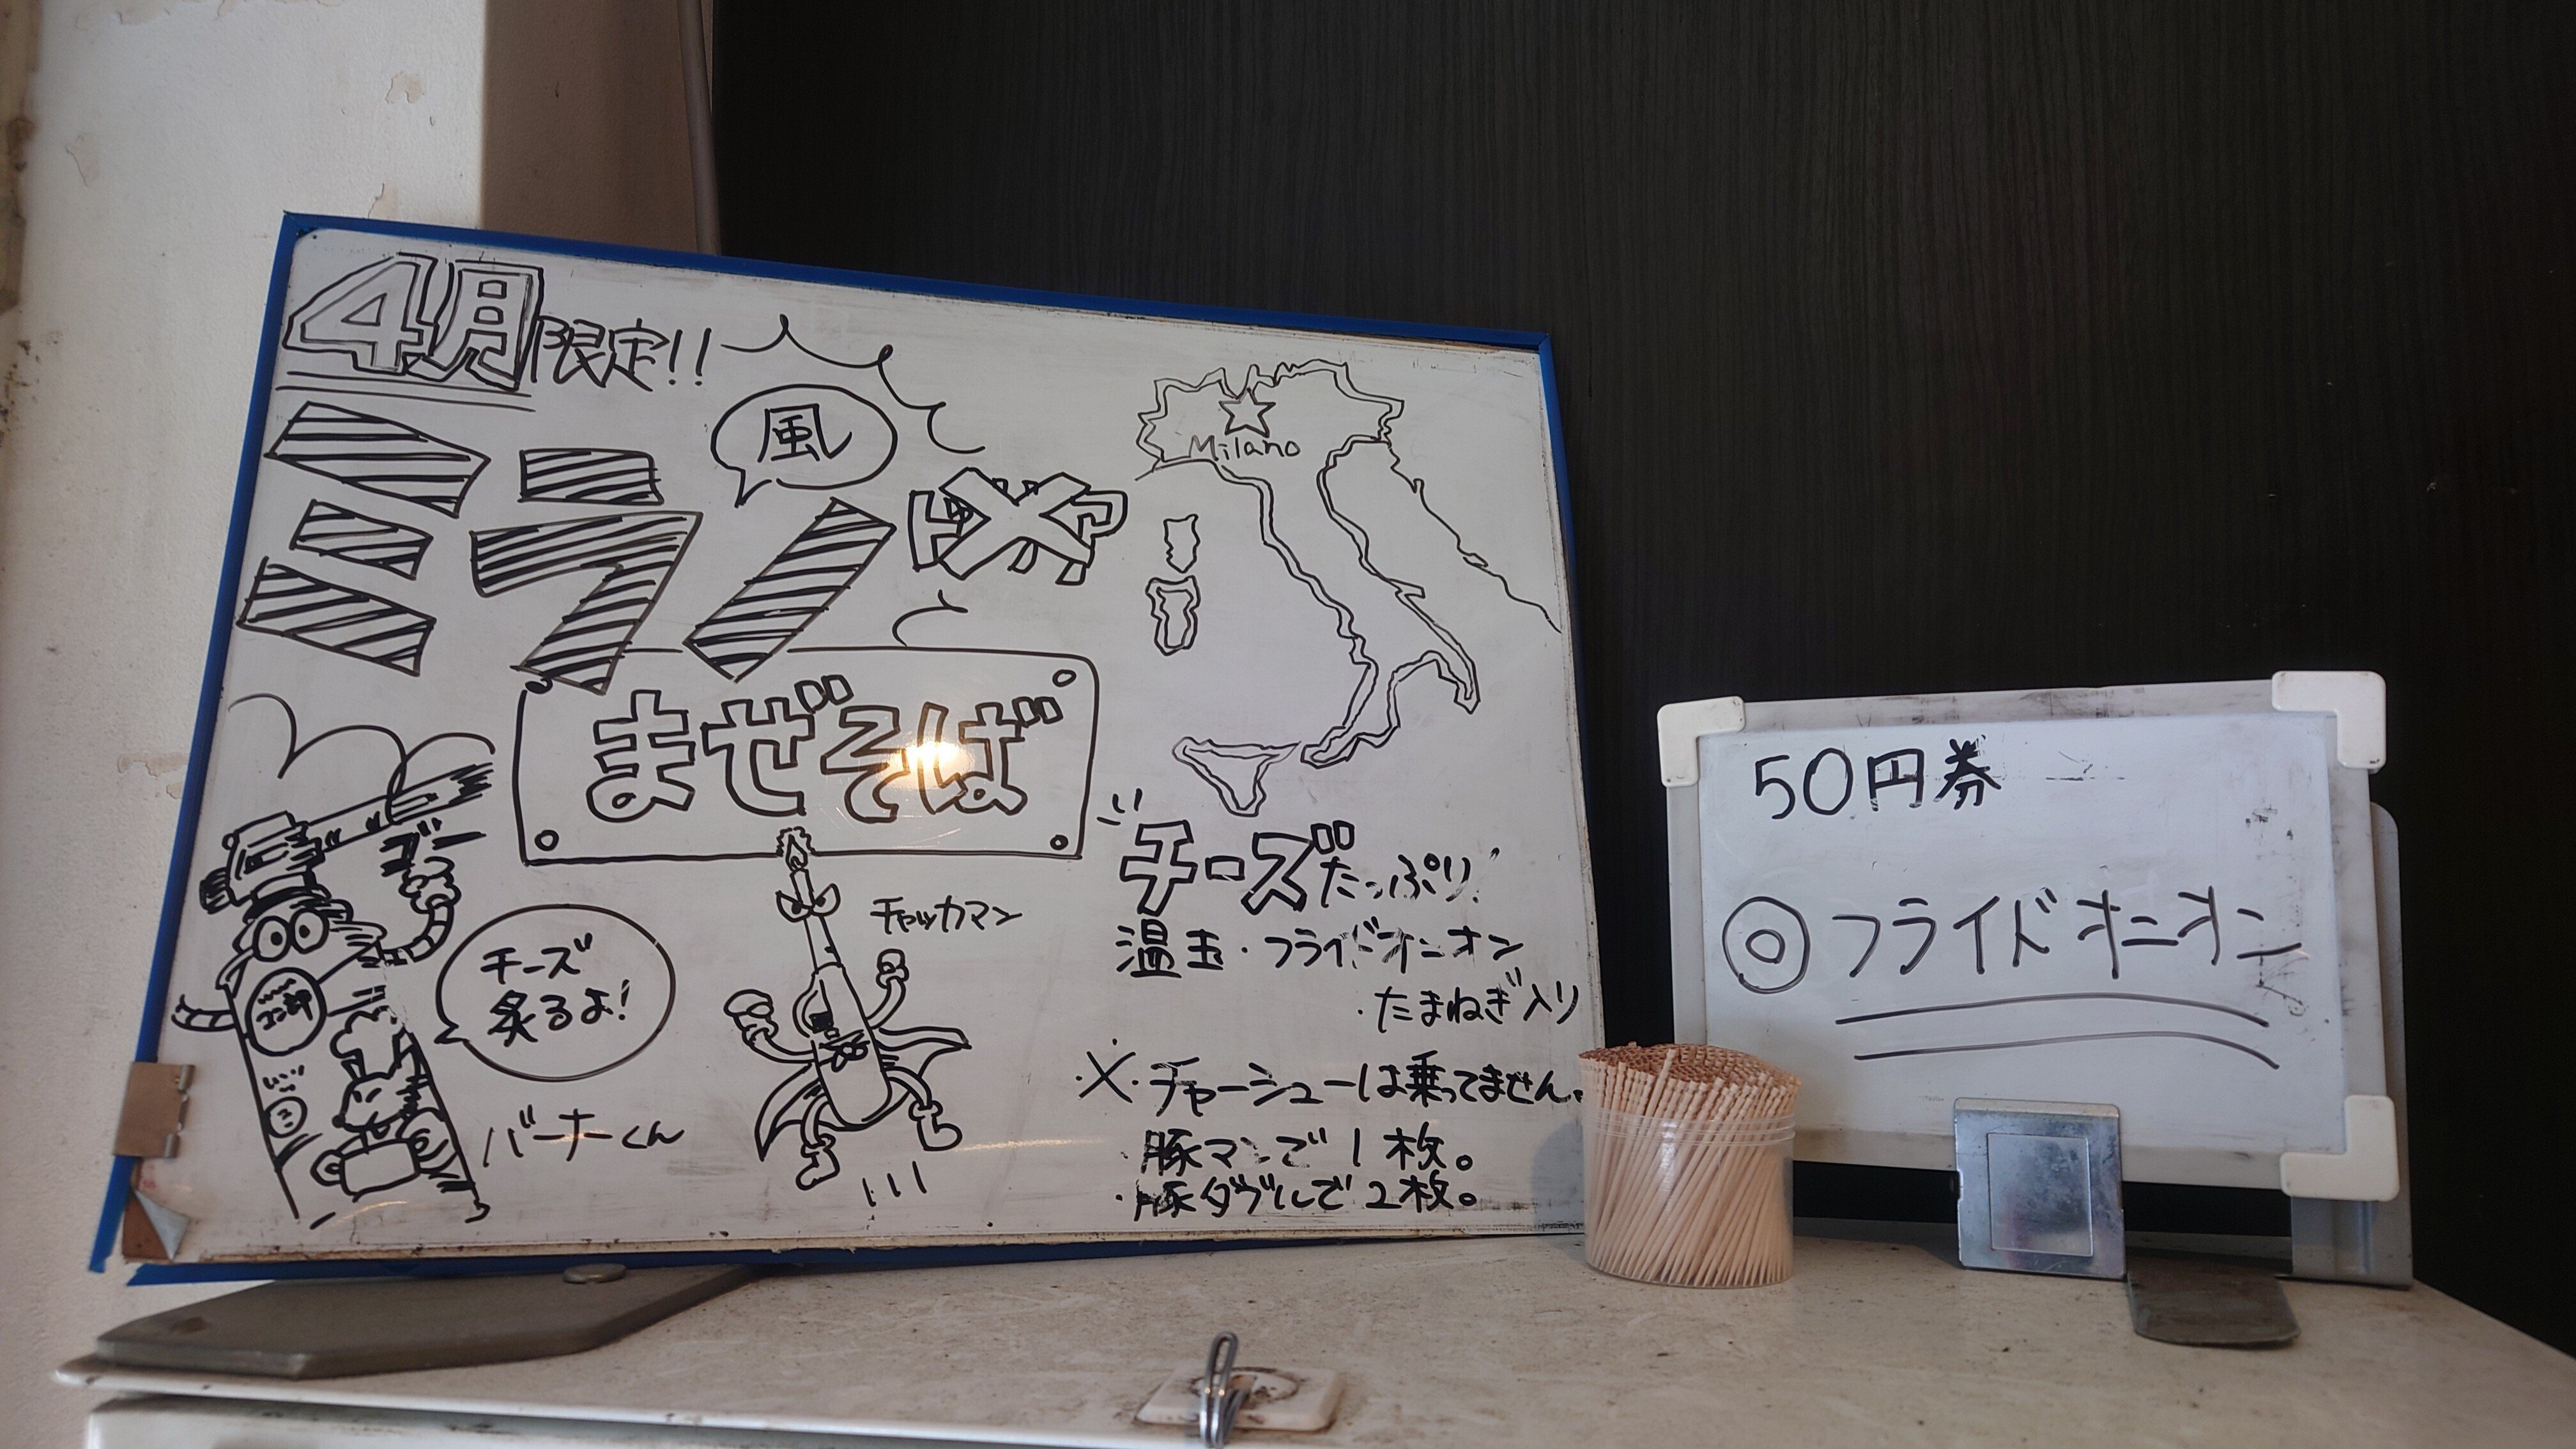 4月限定!!
ミラノ
風
まぜそば
Milano
チーズたっぷり!
温玉・フライドオニオン
・たまねぎ入り
※チャーシューは乗ってません。
豚マシで1枚。
・豚ダブルで2枚。
ゴー
チーズ
炙るよ!
バーナーくん
チャッカマン
50円券
◎フライドオニオン